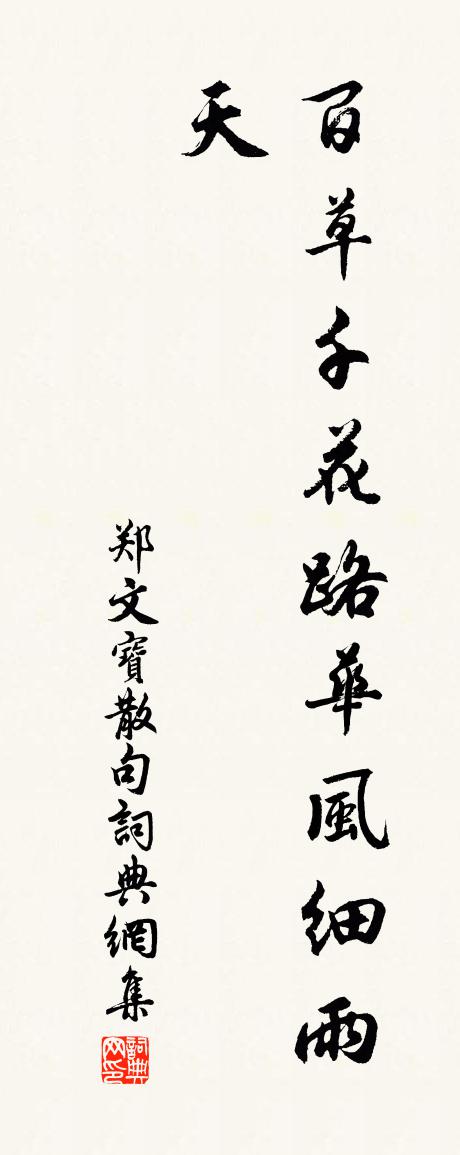 百草千花路華風細雨
天
郑文寶散句詞典網集
詞典
网印